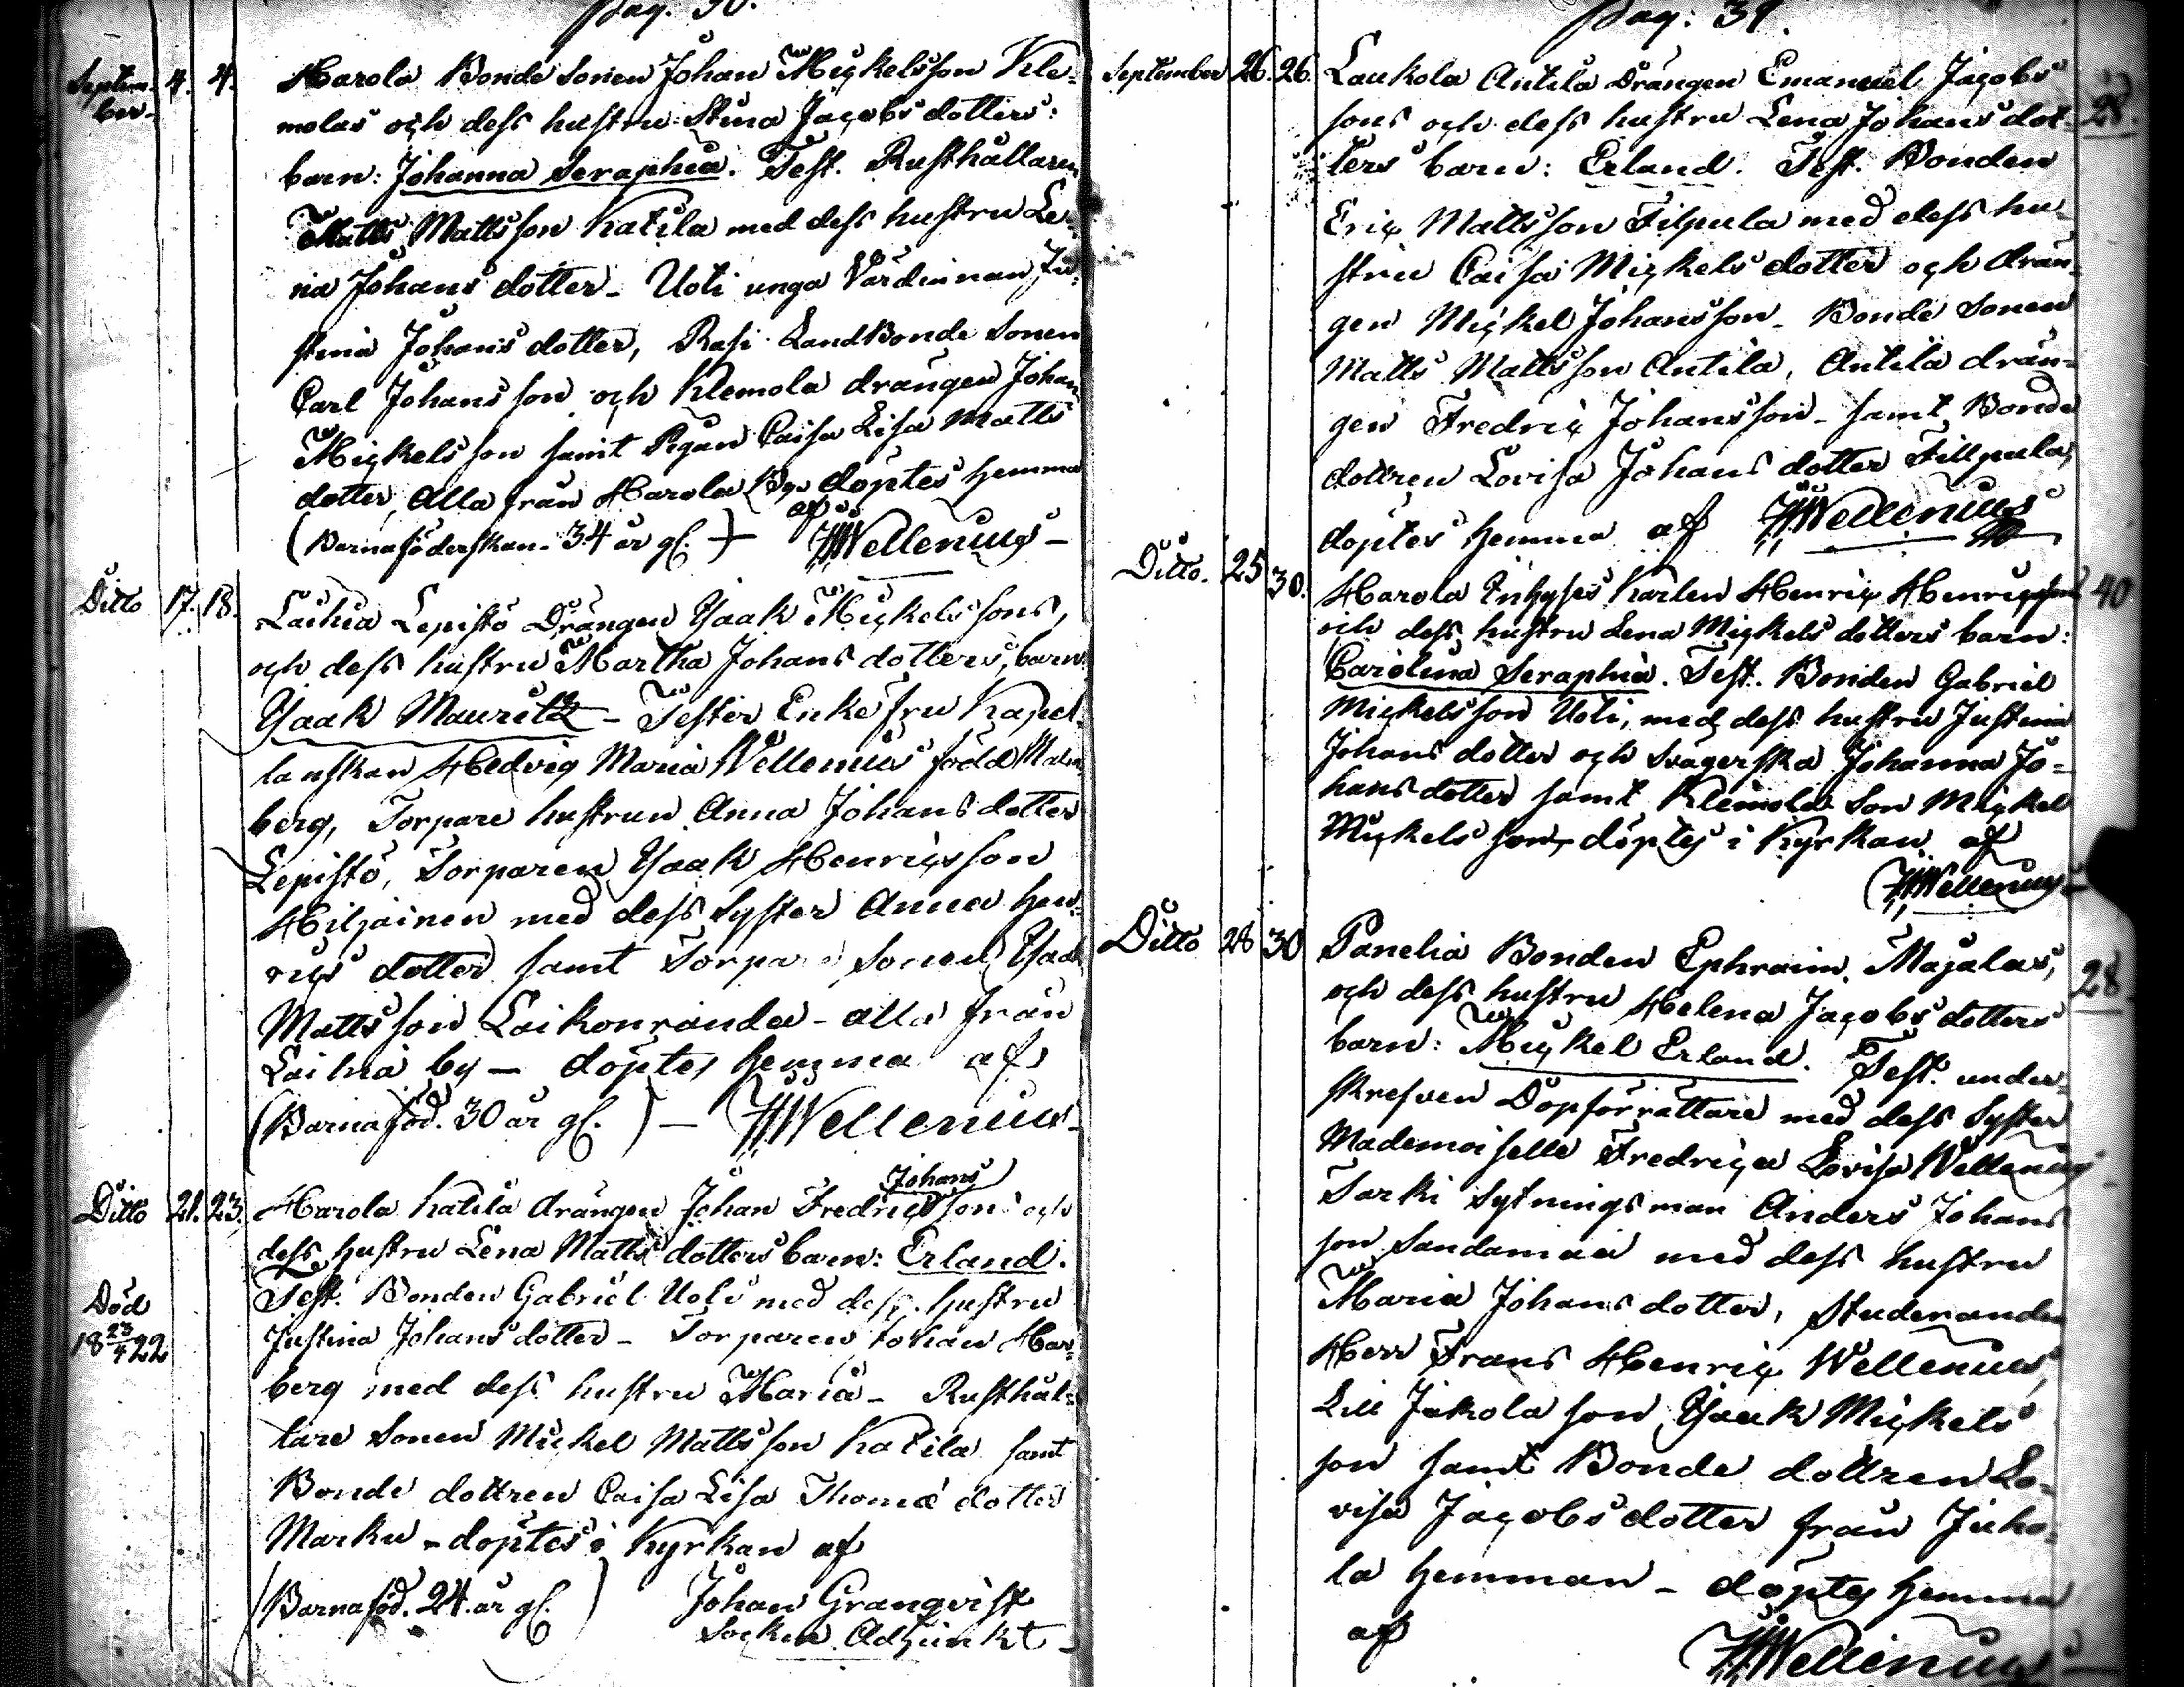 pag. 38.
Septem- 4. 4. Harola Bonde Sonen Johan Mickelsson Kle-
ber. molas och dess hustru Stina Jacobsdotters:
barn: Johanna Seraphia. Test. Rusthållaren
Matts Mattsson Katila med dess hustru Le-
na Johansdotter - Uoti unga Värdinnan Ju-
stina Johansdotter, Rasi LandBonde Sonen
Carl Johansson och Klemola drängen Johan
Mickelsson samt Pigan Caisa Lisa Matts
dotter, Alla från Harola By. döptes hemma
af
(Barnaföderskan. 34 år gl.) HWellenius
Ditto 17. 18. Laihia Lepistö Drängen Ysaak Mickelssons,
och dess hustru Martha Johansdotters, barn:
Ysaak Mauritz - Tester Enkefru Kapel-
lanskan Hedvig Maria Wellenius född Malm
berg, Torpare hustrun Anna Johansdotter
Lepistö, Torparen Ysaak Henricsson
Hiljainen med dess Syster Anna Hen-
rics dotter samt Torpare Sonen Ysaak
Mattsson Laikonranda - alla från
Laihia by - döptes hemma af
(Barnaföd. 30 år gl.) - HWellenius
Johans
Ditto 21. 23. Harola Katila drängen Johan Fredricsson och
dess hustru Lena Mattsdotters barn: Erland.
Test. Bonden Gabriel Uoti med dess hustru
Död Justina Johansdotter - Torparen Johan Har-
18 23/4 22 berg med dess hustru Maria - Rusthål-
lare Sonen Mickel Mattsson Katila samt
Bonde dottren Caisa Lisa Thomæ dotter
Marku - döptes i Kyrkan af
(Barnaföd. 24 år gl.) Johan Granqvist
Socken Adjunkt
pag: 39.
September 26. 26. Laukola Antila Drängen Emanuel Jacobs
sons och dess hustru Lena Johansdot- 28.
ters barn: Erland. Test. Bonden
Eric Mattsson Filpula med dess hu-
stru Caisa Mickelsdotter och drän-
gen Mickel Johansson - Bonde Sonen
Matts Mattsson Antila, Antila drän-
gen Fredric Johansson - samt Bonde
dottren Lovisa Johansdotter Fillpula,
döptes hemma af HWellenius
Ditto. 25 30. Harola Inhyses Karlen Henric Henricssons 40
och dess hustru Lena Mickelsdotters barn:
Carolina Seraphia. Test. Bonden Gabriel
Mickelsson Uoti, med dess hustru Justina
Johansdotter och Svägerska Johanna Jo-
hansdotter samt Klemola Son Mickel
Mickelsson, döptes i Kyrkan af
HWellenius
Ditto 28 30 Panelia Bonden Ephraim Majalas,
och dess hustru Helena Jacobsdotters 28.
barn: Mickel Erland. Test. under-
skrefven Dopförrättare med dess Syster
Mademoiselle Fredrica Lovisa Wellenius
Sarki Sytningsman Anders Johans
son Sandamaa med dess hustru
Maria Johansdotter, Studerande
Herr Frans Henric Wellenius,
Lill Jakola son Ysaak Mickels
son samt Bonde dottren Lo-
visa Jacobsdotter från Juho-
la hemman - döptes hemma
af
HWellenius